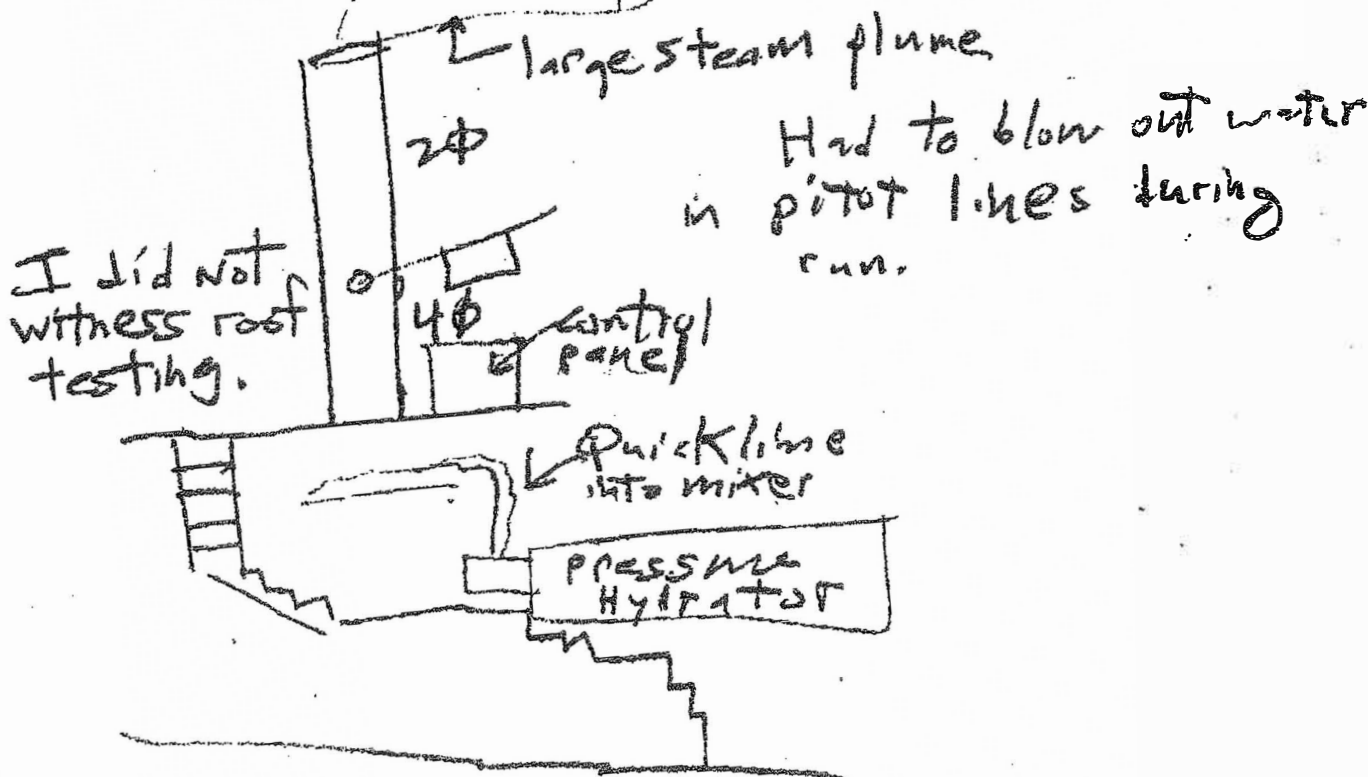 large steam plume
Had to blow out water
in pitot lines during
run.
2φ
I did not
witness roof
testing.
4φ
control
panel
Quicklime
into mixer
pressure
Hydrator